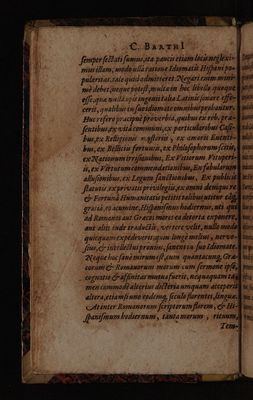 C. BARTHI
semper sectati sumus, ita paucis etiam locis neglexi-
mus illam, modo ulla ratione Idiomatis Hispani po-
pularitas tale quid admitteret. Negari enim mini-
mè debet, neque potest, multa in hoc libello quaque
esse, quæ nulla vis ingenii talia Latinis sonare effi-
cerit, qualibus in suo idiomate omnibus prolubant.
Huc refero præcipuè proverbia, quibus ex reb. præ-
sentibus, ex vita communi, ex particularibus Casi-
bus, ex Religionis mysteriis, ex omnis Lucenti-
bus, ex Bellicis fortunis, ex Philosophorum scitis,
ex Nationum irrisionibus, Ex Vitiorum Vituperi-
is, ex Virtutum commendationibus, Ex fabularum
allusionibus, ex Legum sanctionibus, Ex publicis
statutis, ex privatis privilegiis, ex omni denique re
& Fortunâ Humanitatis petitis talibus utitur eâq;
gratiâ, eo acumine, Hispanismus hodiernus, uti qui
ad Romanos aut Græcos mores ea deserta exponere,
aut aliis unde traductis, vertere velit, nullo modo
quicquam expediverit; quum longè melius, nervo-
sius, & intellectus pronius, sonent in suo Idiomate.
Neque hoc sanè mirum est, quum quantacunq; Græ-
corum & Romanorum morum cum sermone ipsa,
cognatio & affinitas mutua fuerit, nequaquam ta-
men commodè alterius dicteria unquam acceperit
altera, etiamsi uno eodemq; seculo florentes, linguæ.
At inter Romanorum scriptorum florem, & Hi-
spanismum hodiernum, tanta morum, rituum,
Tem-